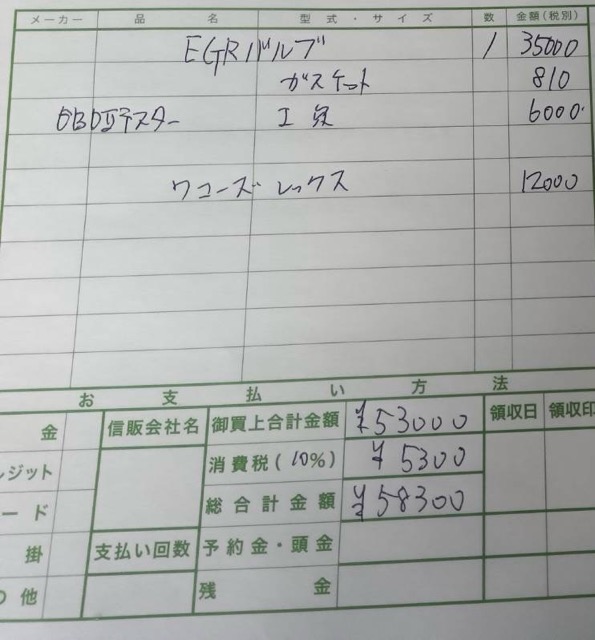 メーカー 品名 型式・サイズ 数 金額(税別)
EGRバルブ 1 35000
ガスケット 810
OBDⅡテスター 工賃 6000
ワコーズ レックス 12000
お支払い方法
金 信販会社名 御買上合計金額 ¥53000 領収日 領収印
レジット 消費税(10%) ¥5300
ード 総合計金額 ¥58300
掛 支払い回数 予約金・頭金
の他 残金